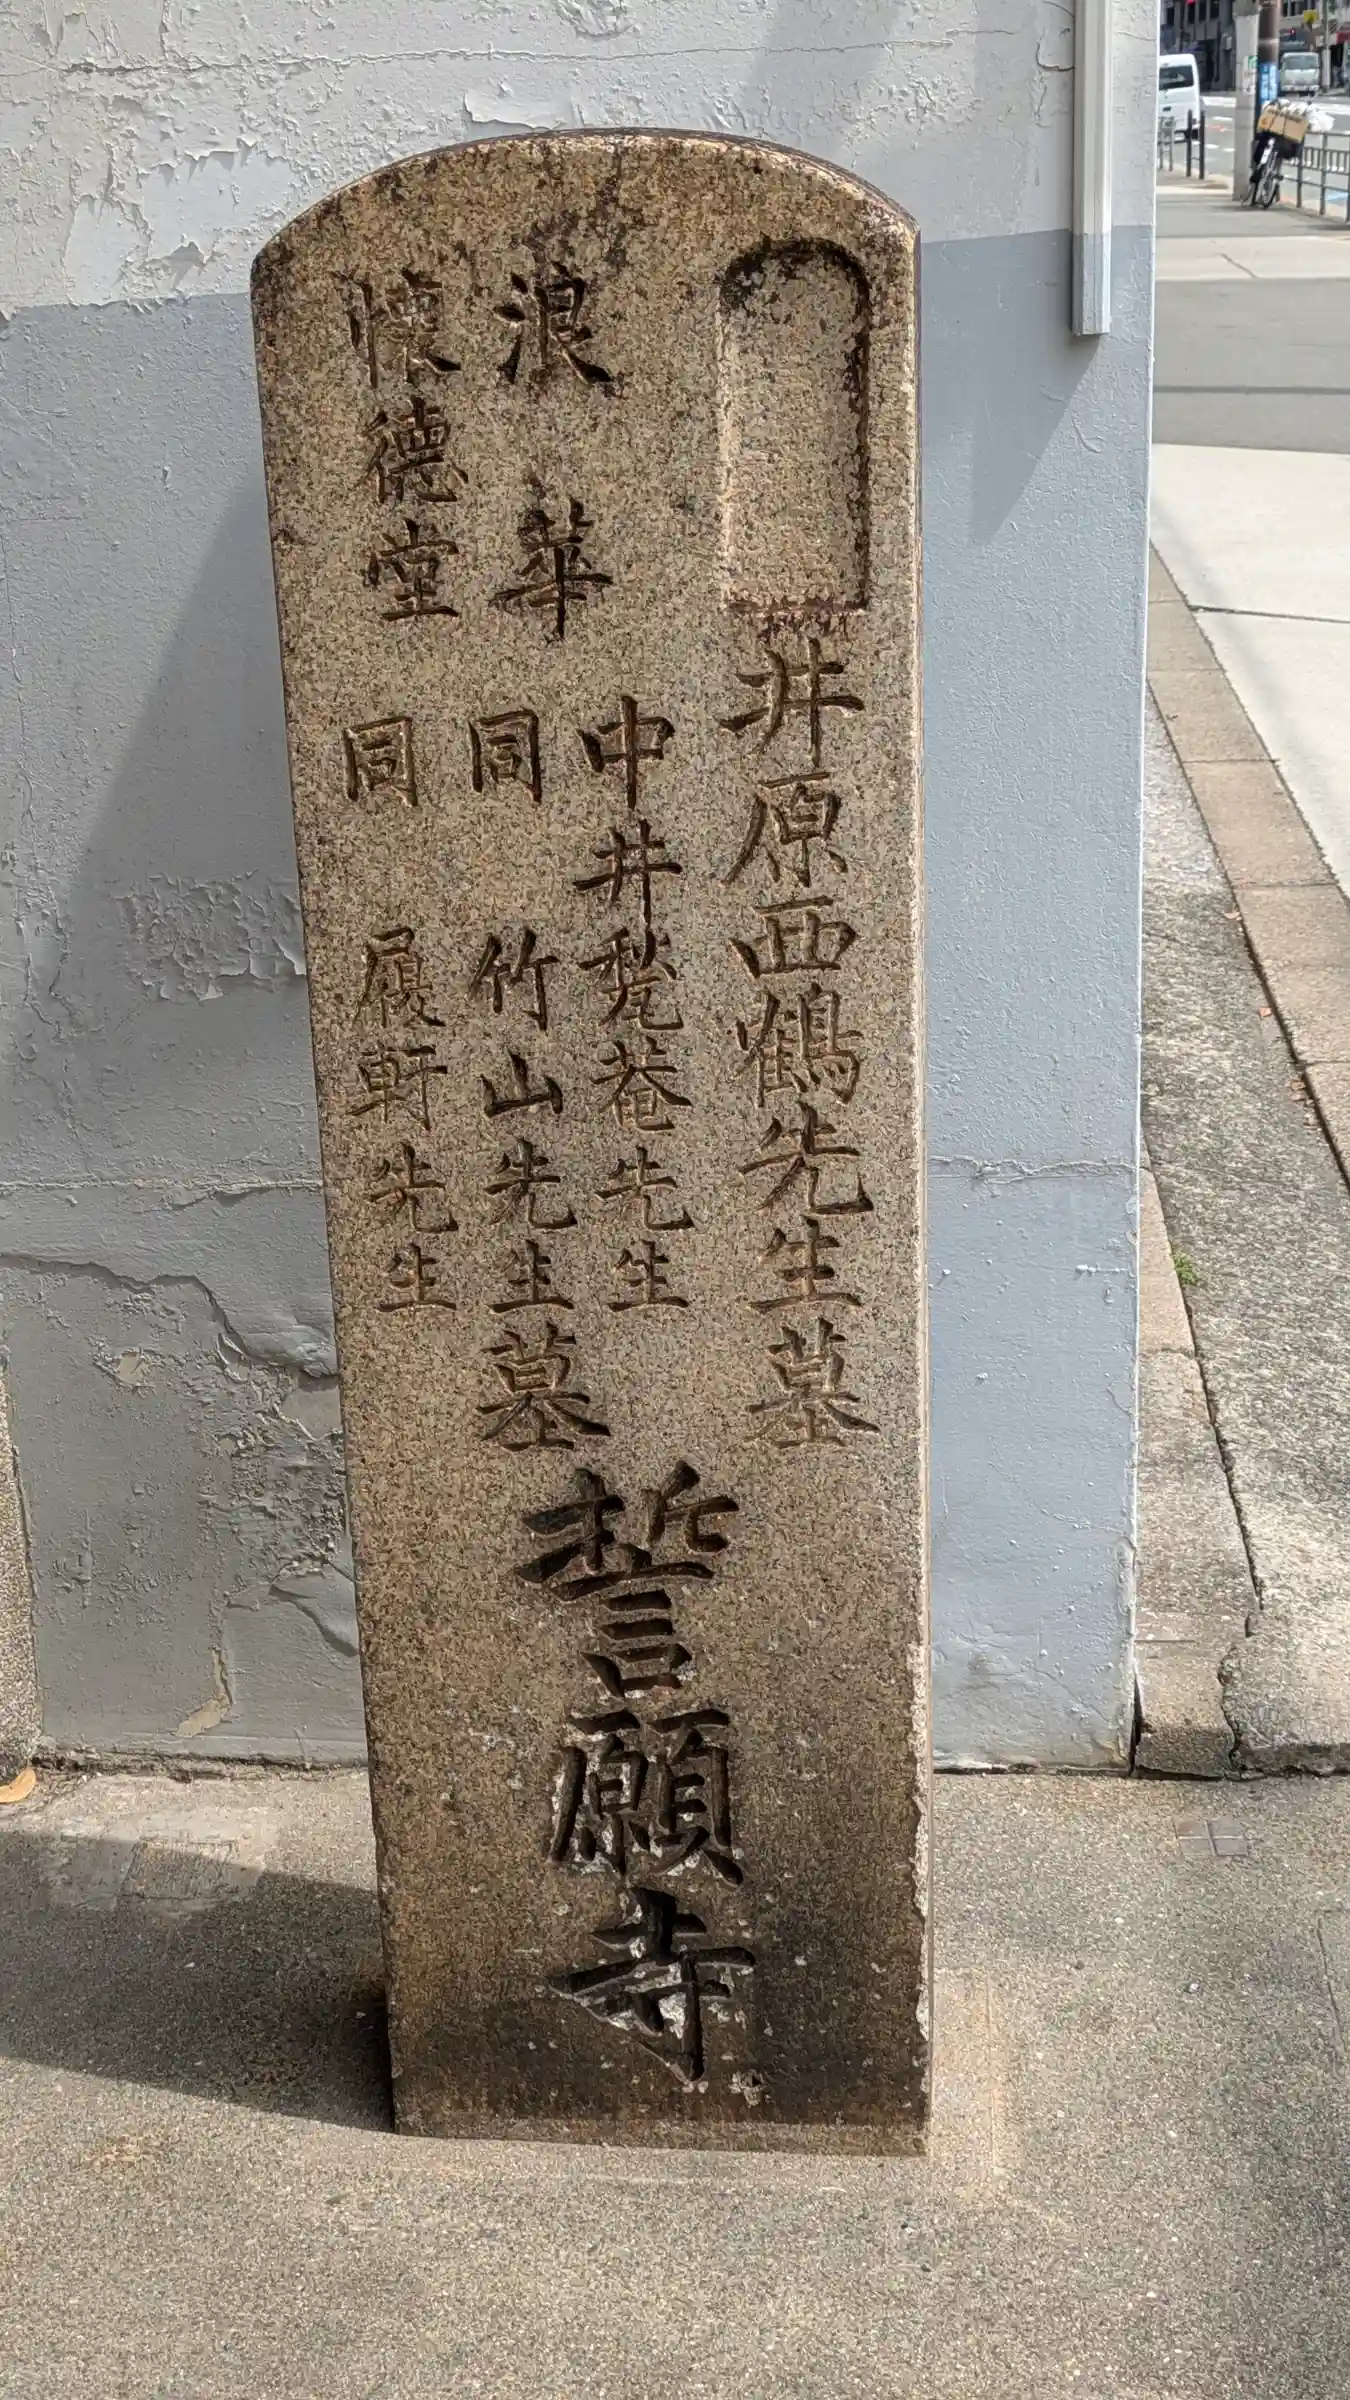 井原西鶴先生墓
浪華
懐徳堂
中井甃菴先生
同 竹山先生墓
同 履軒先生
誓願寺